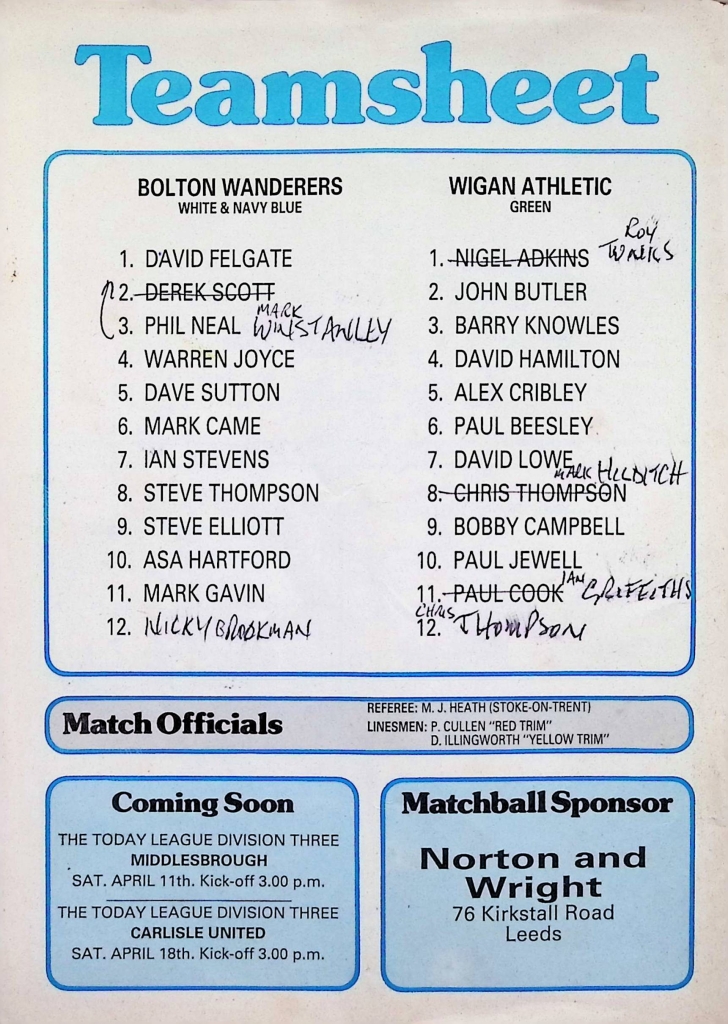 Teamsheet
BOLTON WANDERERS
WHITE & NAVY BLUE
1. DAVID FELGATE
2. DEREK SCOTT
3. PHIL NEAL MARK WINSTANLEY
4. WARREN JOYCE
5. DAVE SUTTON
6. MARK CAME
7. IAN STEVENS
8. STEVE THOMPSON
9. STEVE ELLIOTT
10. ASA HARTFORD
11. MARK GAVIN
12. NICKY BROOKMAN
WIGAN ATHLETIC
GREEN
1. NIGEL ADKINS ROY TUNKS
2. JOHN BUTLER
3. BARRY KNOWLES
4. DAVID HAMILTON
5. ALEX CRIBLEY
6. PAUL BEESLEY
7. DAVID LOWE
MARK HILDITCH
8. CHRIS THOMPSON
9. BOBBY CAMPBELL
10. PAUL JEWELL
11. PAUL COOK IAN GRIFFITHS
12. CHRIS THOMPSON
Match Officials
REFEREE: M. J. HEATH (STOKE-ON-TRENT)
LINESMEN: P. CULLEN "RED TRIM"
D. ILLINGWORTH "YELLOW TRIM"
Coming Soon
THE TODAY LEAGUE DIVISION THREE
MIDDLESBROUGH
SAT. APRIL 11th. Kick-off 3.00 p.m.
THE TODAY LEAGUE DIVISION THREE
CARLISLE UNITED
SAT. APRIL 18th. Kick-off 3.00 p.m.
Matchball Sponsor
Norton and
Wright
76 Kirkstall Road
Leeds